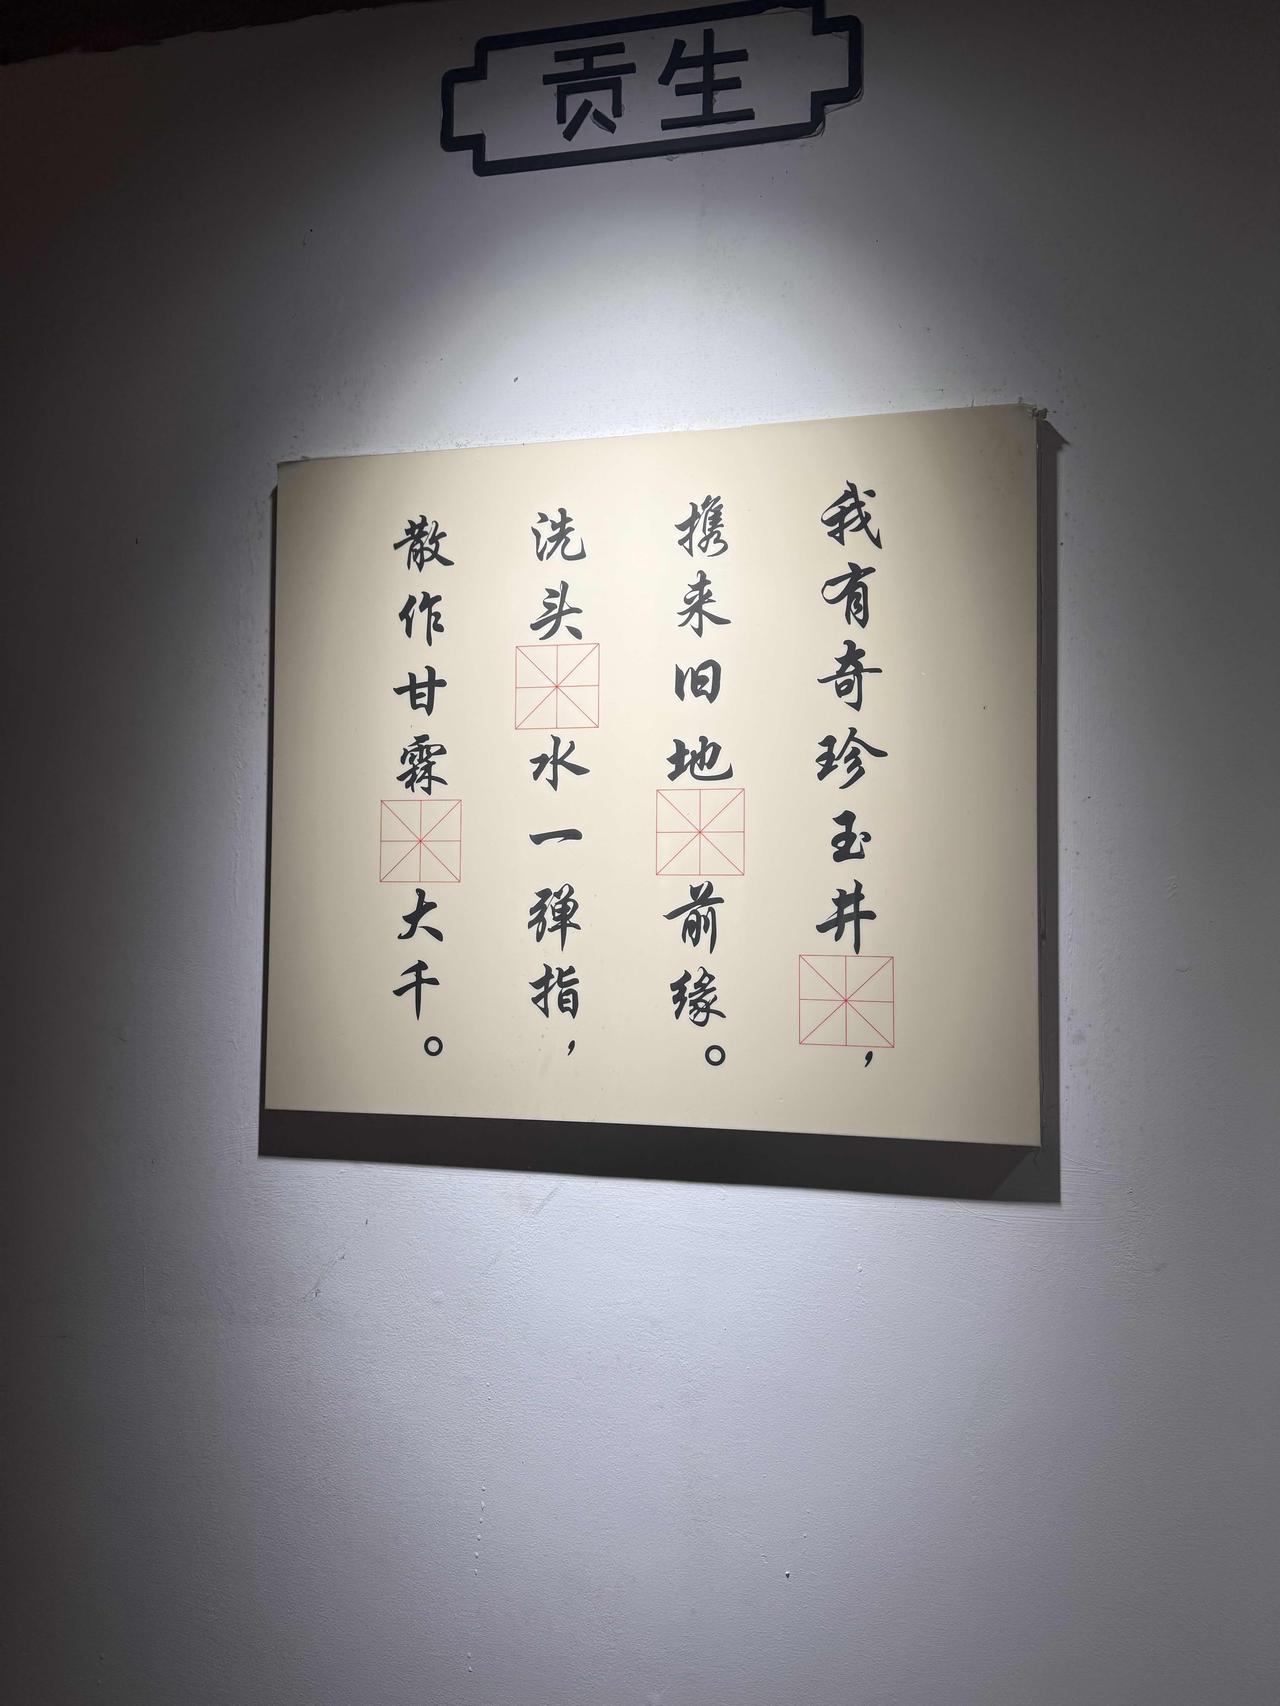 贡生
我有奇珍玉井，
携来旧地前缘。
洗头水一弹指，
散作甘霖大千。